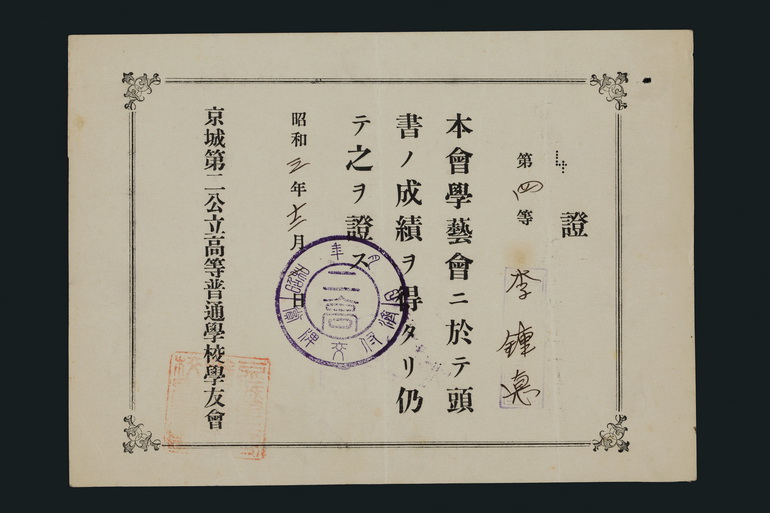 證
第四等
李鍾惪
本會學藝會ニ於テ頭
書ノ成績ヲ得タリ仍
テ之ヲ證ス
昭和三年十二月 日
京城第二公立高等普通學校學友會
二高